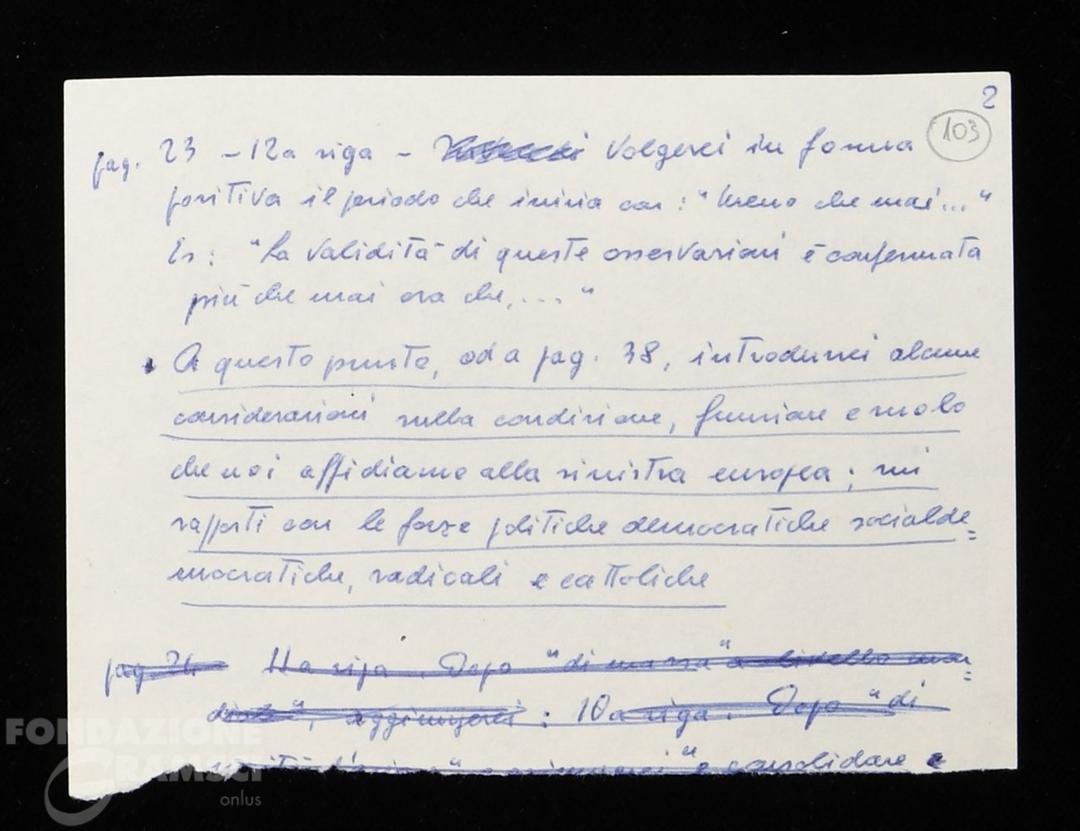 2
103
pag. 23 - 12a riga - volgerei in forma
positiva il periodo che inizia con: "Meno che mai..."
Es: "La validità di queste osservazioni è confermata
più che mai ora che,..."
A questo punto, od a pag. 38, introdurrei alcune
considerazioni sulla condizione, funzione e ruolo
che noi affidiamo alla sinistra europea; nei
rapporti con le forze politiche democratiche socialde=
mocratiche, radicali e cattoliche
pag 24 11a riga. Dopo "di massa" a livello mon=
diale", aggiungerei: 10a riga. Dopo "di
" e consolidare e
FONDAZIONE
GRAMSCI
onlus